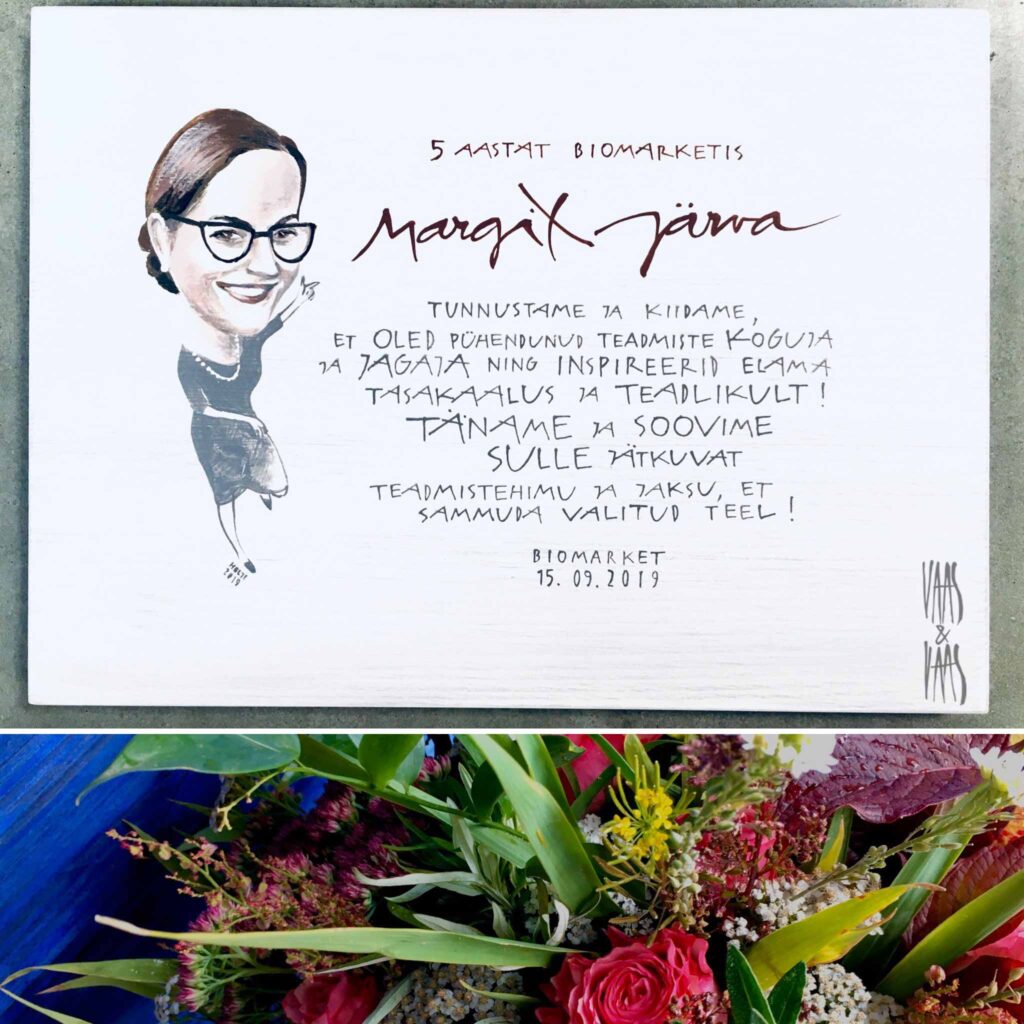 5 AASTAT BIOMARKETIS
Margit Järva
TUNNUSTAME JA KIIDAME,
ET OLED PÜHENDUNUD TEADMISTE KOGUJA
JA JAGAJA NING INSPIREERID ELAMA
TASAKAALUS JA TEADLIKULT!
TÄNAME JA SOOVIME
SULLE JÄTKUVAT
TEADMISTEHIMU JA JAKSU, ET
SAMMUDA VALITUD TEEL!
BIOMARKET
15.09.2019
2019
VAAS
&
VAAS